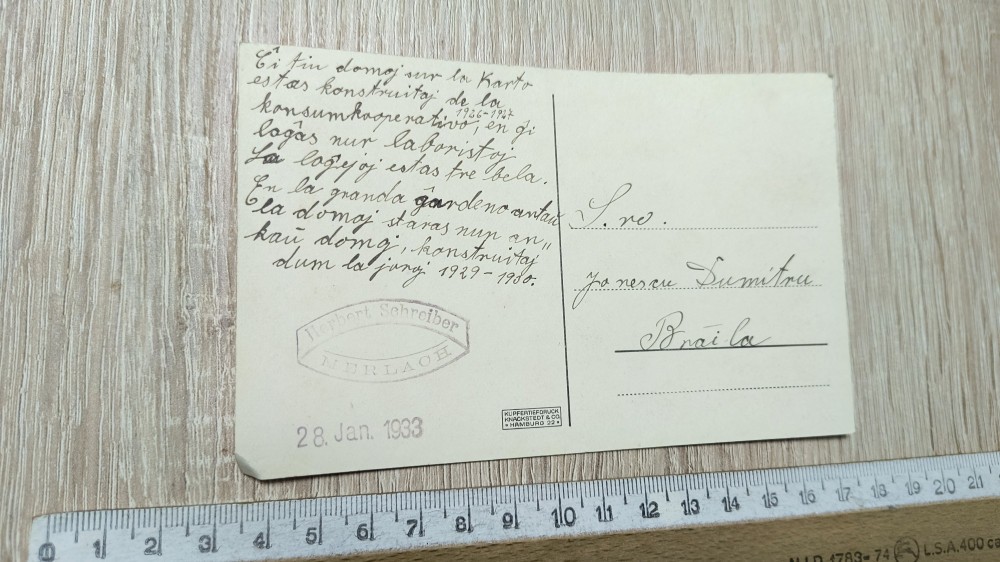 Ĉi tiu domoj sur la Karto
estas konstruitaj de la
1926-1927
konsumkooperativo, en ĝi
loĝas nur laboristoj
La loĝejoj estas tre bela.
En la granda ĝardeno antaŭ
la domoj staras nun an„
kaŭ domoj, konstruitaj
dum la jaroj 1929-1930.
Herbert Schreiber
MERLACH
28. Jan. 1933
KUPFERTIEFDRUCK
KNACKSTEDT & CO.
• HAMBURG 22 •
S. ro.
Jonescu Dumitru
Brăila
0 1 2 3 4 5 6 7 8 9 10 11 12 13 14 15 16 17 18 19 20 21
N.I.D. 1783-74 L.S.A. 400 ca